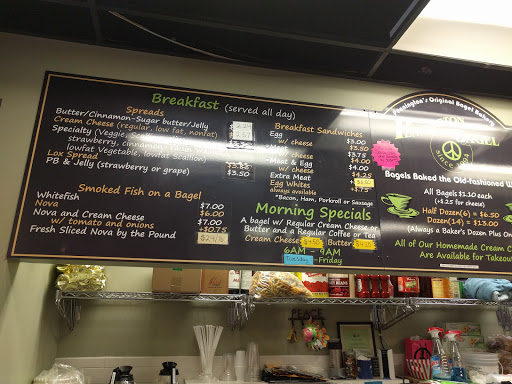 Breakfast (served all day)
Spreads
Butter/Cinnamon-Sugar butter/Jelly
Cream Cheese (regular, low fat, nonfat)
Specialty (Veggie,
strawberry, cinnamon
lowfat Vegetable, lowfat Scallion)
Lox Spread
PB & Jelly (strawberry or grape) $3.50
Smoked Fish on a Bagel
Whitefish $7.00
Nova $6.00
Nova and Cream Cheese $7.00
w/ tomato and onions +0.75
Fresh Sliced Nova by the Pound
Breakfast Sandwiches
Egg $3.00
w/ cheese $3.50
$3.75
w/ cheese $4.00
Meat & Egg $4.00
w/ cheese $4.25
Extra Meat
Egg Whites
always available $.75*
*Bacon, Ham, Porkroll or Sausage
Morning Specials
A bagel w/ Regular Cream Cheese or
Butter and a Regular Coffee or Tea
Cream Cheese Butter
6AM - 9AM
Tuesday-Friday
Pennington's Original Bagel Bakery
Bagels Baked the Old-fashioned
All Bagels $1.30 each
(+$.25 for cheese)
Half Dozen(6) = $6.50
Dozen(14) = $13.00
(Always a Baker's Dozen Plus On
All of Our Homemade Cream C
Are Available for Takeou
PEACE